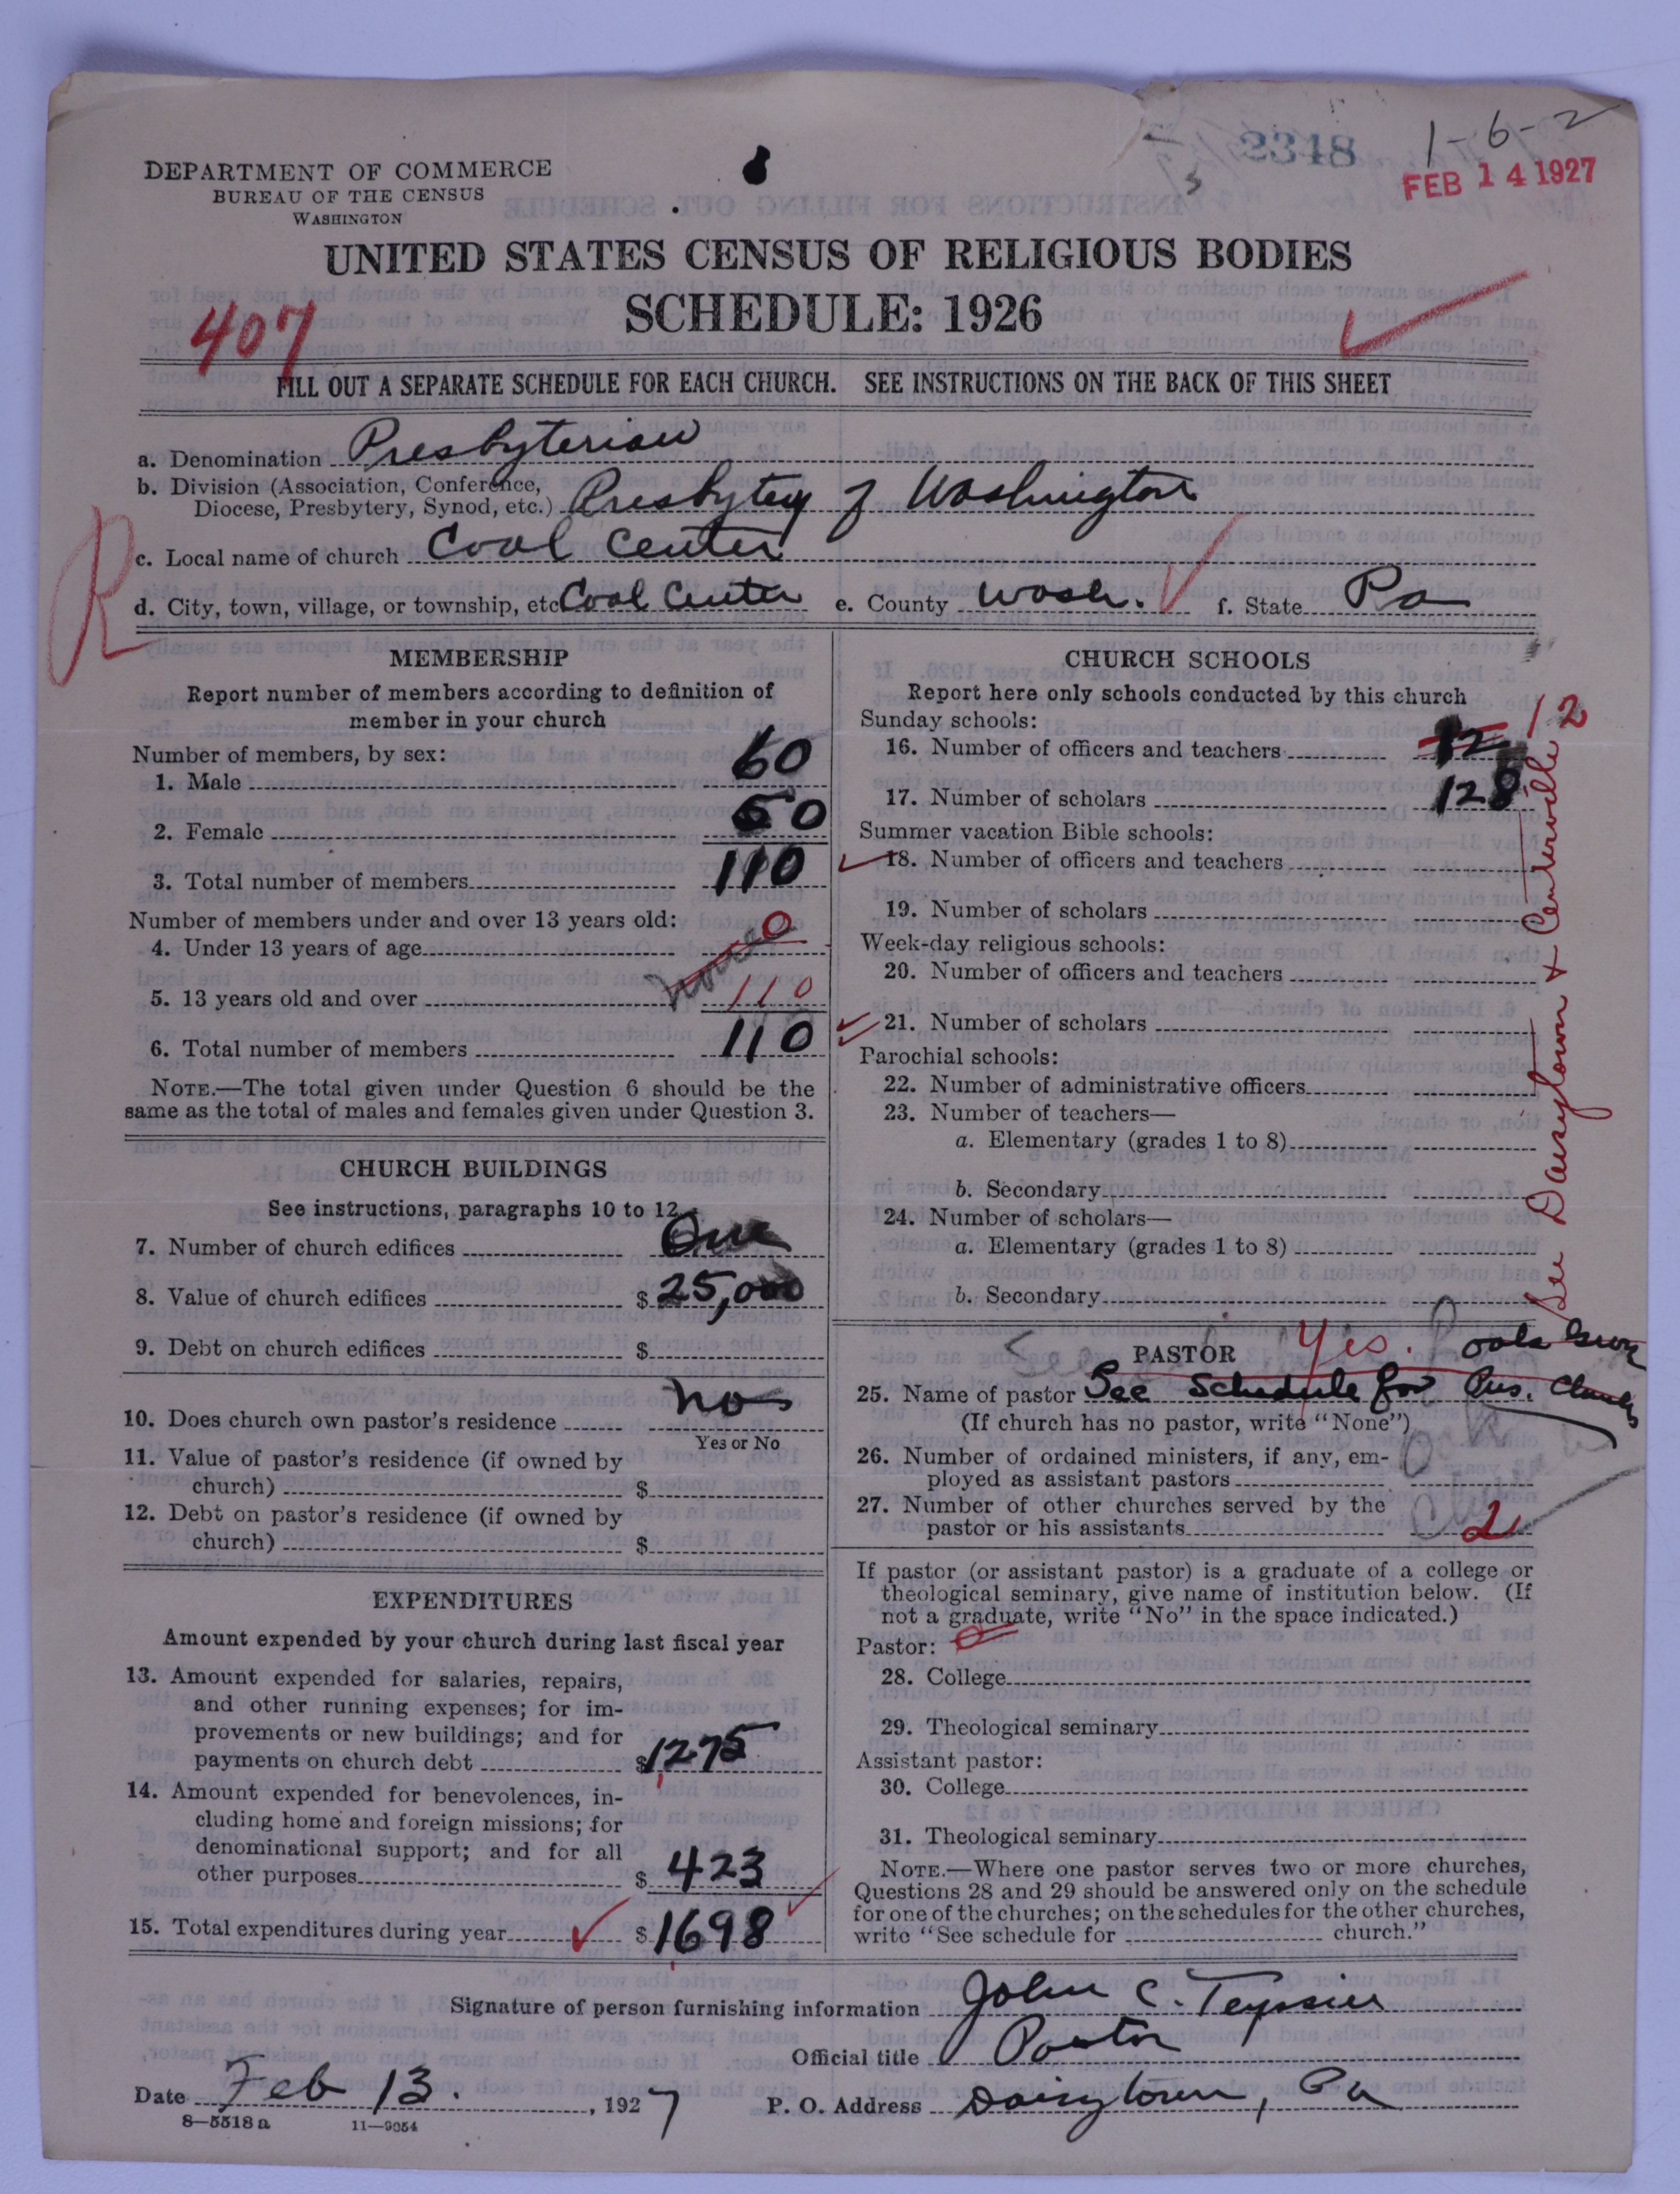 2348
1-6-2
FEB 14 1927
DEPARTMENT OF COMMERCE
BUREAU OF THE CENSUS
WASHINGTON
UNITED STATES CENSUS OF RELIGIOUS BODIES
SCHEDULE: 1926
407
FILL OUT A SEPARATE SCHEDULE FOR EACH CHURCH. SEE INSTRUCTIONS ON THE BACK OF THIS SHEET
a. Denomination Presbyterian
b. Division (Association, Conference,
Diocese, Presbytery, Synod, etc.) Presbytery of Washington
c. Local name of church Coal Center
d. City, town, village, or township, etc Coal Center e. County Wash. f. State Pa
R
MEMBERSHIP
Report number of members according to definition of
member in your church
Number of members, by sex:
1. Male 60
2. Female 50
3. Total number of members 110
Number of members under and over 13 years old:
4. Under 13 years of age 0
none
5. 13 years old and over 110
6. Total number of members 110
NOTE.—The total given under Question 6 should be the
same as the total of males and females given under Question 3.
CHURCH BUILDINGS
See instructions, paragraphs 10 to 12
7. Number of church edifices One
8. Value of church edifices $ 25,000
9. Debt on church edifices $
10. Does church own pastor's residence no
Yes or No
11. Value of pastor's residence (if owned by
church) $
12. Debt on pastor's residence (if owned by
church) $
EXPENDITURES
Amount expended by your church during last fiscal year
13. Amount expended for salaries, repairs,
and other running expenses; for im-
provements or new buildings; and for
payments on church debt $1275
14. Amount expended for benevolences, in-
cluding home and foreign missions; for
denominational support; and for all
other purposes $ 423
15. Total expenditures during year $1698
CHURCH SCHOOLS
Report here only schools conducted by this church
Sunday schools:
16. Number of officers and teachers 12 12
17. Number of scholars 128
Summer vacation Bible schools:
18. Number of officers and teachers
19. Number of scholars
Week-day religious schools:
20. Number of officers and teachers
21. Number of scholars
Parochial schools:
22. Number of administrative officers
23. Number of teachers—
a. Elementary (grades 1 to 8)
b. Secondary
24. Number of scholars—
a. Elementary (grades 1 to 8)
b. Secondary
See Daisytown & Centerville
PASTOR Yes.
25. Name of pastor See Schedule for Pres. Church
(If church has no pastor, write "None")
26. Number of ordained ministers, if any, em-
ployed as assistant pastors
27. Number of other churches served by the
pastor or his assistants 2
If pastor (or assistant pastor) is a graduate of a college or
theological seminary, give name of institution below. (If
not a graduate, write "No" in the space indicated.)
Pastor: 0
28. College
29. Theological seminary
Assistant pastor:
30. College
31. Theological seminary
NOTE.—Where one pastor serves two or more churches,
Questions 28 and 29 should be answered only on the schedule
for one of the churches; on the schedules for the other churches,
write "See schedule for church."
Signature of person furnishing information John C. Teyssier
Official title Pastor
Date Feb 13. , 1927 P. O. Address Daisytown, Pa
8—5518a 11—9054